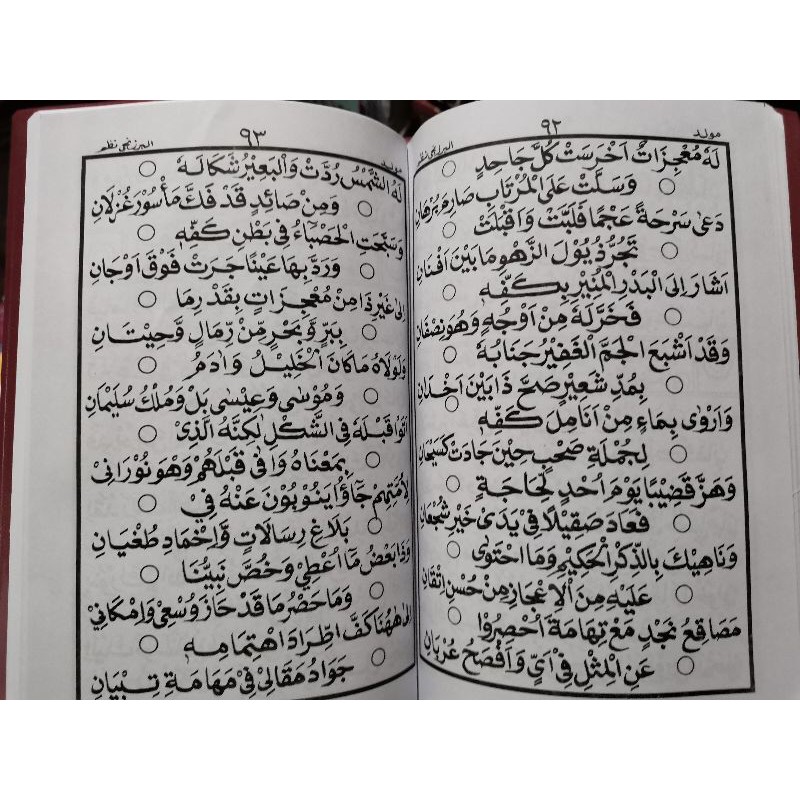 مولد ٩٢ البرزنجي نظم
لَهُ مُعْجِزَاتٌ اَخْرَسَتْ كُلَّ جَاحِدٍ
وَسَلَّتْ عَلَى الْمُرْتَابِ صَارِمَ بُرْهَانِ
دَعٰى سَرْحَةً عَجْمًا فَلَبَّتْ وَاَقْبَلَتْ
تَجُرُّ ذُيُوْلَ الزَّهْوِ مَا بَيْنَ اَفْنَانِ
اَشَارَ اِلَى الْبَدْرِ الْمُنِيْرِ بِكَفِّهٖ
فَخَرَّ لَهٗ مِنْ اَوْجُهٖ وَهُوَ نِصْفَانِ
وَقَدْ اَشْبَعَ الْجَمَّ الْغَفِيْرَ جَنَابُهٗ
بِمُدِّ شَعِيْرٍ صَحَّ ذَا بَيْنَ اَخْدَانِ
وَاَرْوٰى بِمَاءٍ مِنْ اَنَامِلِ كَفِّهٖ
لِجُمْلَةِ صَحْبٍ حِيْنَ جَادَتْ كَسَيْحَانِ
وَهَزَّ قَضِيْبًا يَوْمَ اُحْدٍ لِحَاجَةٍ
فَعَادَ صَقِيْلًا فِيْ يَدَىْ خَيْرِ شُجْعَانِ
وَنَاهِيْكَ بِالذِّكْرِ الْحَكِيْمِ وَمَا احْتَوٰى
عَلَيْهِ مِنَ الْاِعْجَازِ مِنْ حُسْنِ اِتْقَانِ
مَصَاقِعُ نَجْدٍ مَعْ تِهَامَةَ اُحْصِرُوْا
عَنِ الْمِثْلِ فِيْ اٰيٍ وَاَفْصَحُ عُرْبَانِ
مولد ٩٣ البرزنجي نظم
لَهُ الشَّمْسُ رُدَّتْ وَالْبَعِيْرُ شَكَا لَهٗ
وَمِنْ صَائِدٍ قَدْ فَكَّ مَأْسُوْرَ غُزْلَانِ
وَسَبَّحَتِ الْحَصْبَاءُ فِيْ بَطْنِ كَفِّهٖ
وَرَدَّ بِهَا عَيْنًا جَرَتْ فَوْقَ اَوْجَانِ
اِلٰى غَيْرِ ذَا مِنْ مُعْجِزَاتٍ بِقَدْرِ مَا
بِبَرٍّ وَّبَحْرٍ مِّنْ رِمَالٍ وَّحِيْتَانِ
وَلَوْلَاهُ مَا كَانَ الْخَلِيْلُ وَاٰدَمُ
وَمُوْسٰى وَعِيْسٰى بَلْ وَمُلْكُ سُلَيْمَانِ
اَتَوْا قَبْلَهٗ فِي الشَّكْلِ لٰكِنَّهُ الَّذِيْ
بِمَعْنَاهُ وَافٰى قَبْلَهُمْ وَهُوَ نُوْرَانِيْ
لِاُمَّتِهِمْ جَاؤُا يَنُوْبُوْنَ عَنْهُ فِيْ
بَلَاغِ رِسَالَاتٍ وَّاِخْمَادِ طُغْيَانِ
وَذَا بَعْضُ مَا اُعْطِيْ وَخُصَّ نَبِيُّنَا
وَمَا حَصْرُ مَا قَدْ حَازَ وُسْعِيْ وَاِمْكَانِيْ
اِلٰى هٰهُنَا كَفَّ اطِّرَادَ اهْتِمَامِهٖ
جَوَادُ مَقَالِيْ فِيْ مَهَامَةِ تِبْيَانِ